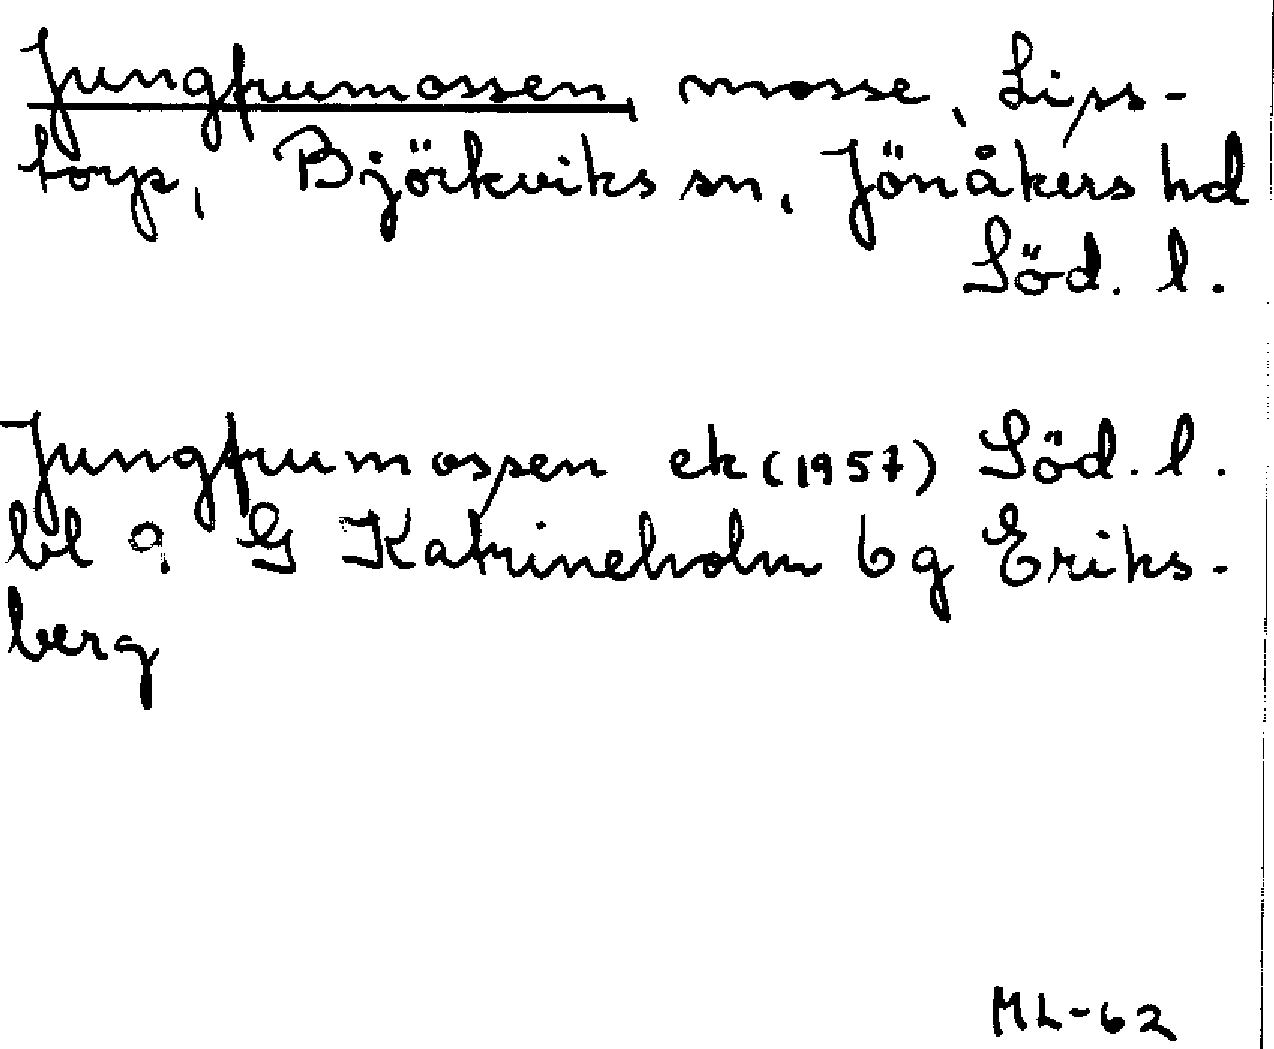 Jungfrumossen mosse, Lips-
torp, Björkviks sn, Jönåkers hd
Söd. l.
Jungfrumossen ek (1957) Söd. l.
bl 9 G Katrineholm 6g Eriks-
berg
ML-62